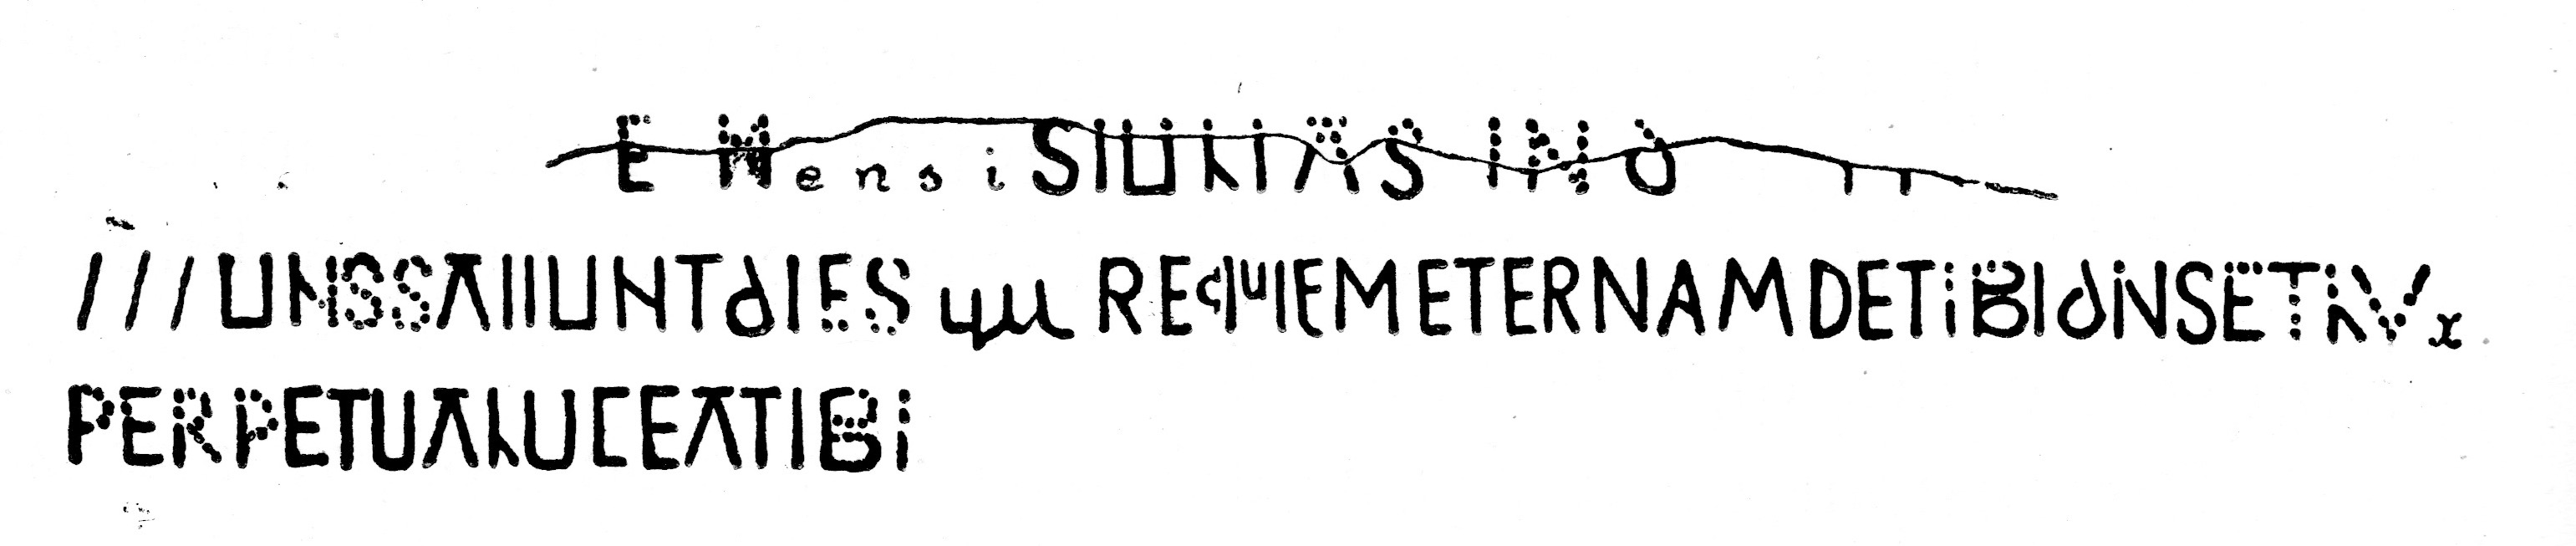 E MensiSIULIAS IND
///UNSSAIIUNTDIES REQUIEMETERNAMDETIBIDNSETLVx
PERPETUALUCEATIBI